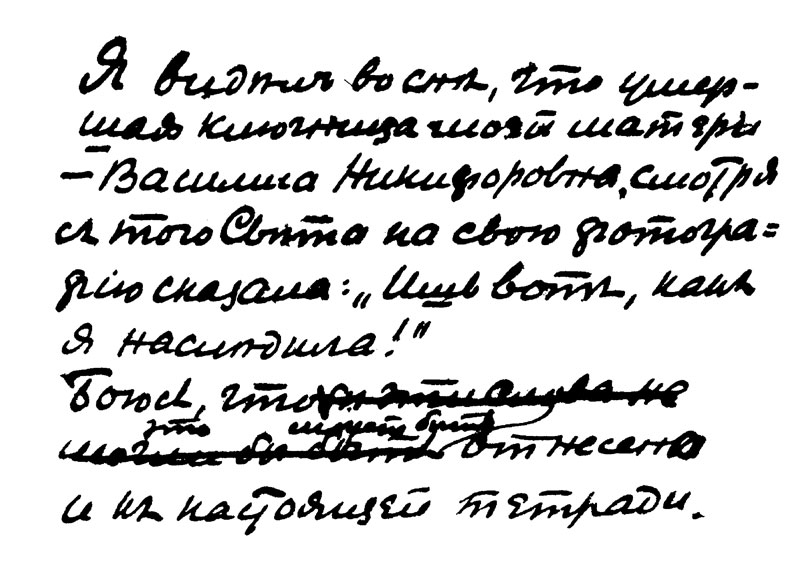 Я видѣлъ во снѣ, что умер-
шая ключница моей матери
— Василиса Никифоровна, смотря
съ того Свѣта на свою фотогра=
фію сказала: „Ишь вотъ, какъ
я наслѣдила!"
Боюсь, что бы эти слова не
это может быть
могли бы быть отнесены
и къ настоящей тетради.